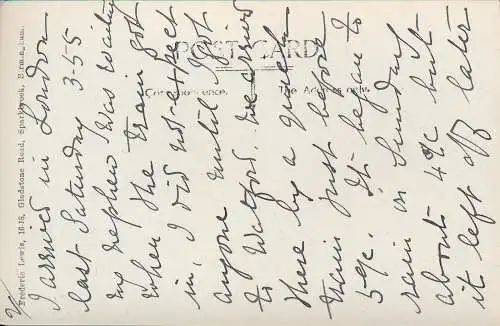 POST CARD
Correspondence.
The Address only.
Frederic Lewis, 16-18, Gladstone Road, Sparkbrook, Birmingham.
I arrived in London
last Saturday 3-55
my nephew was waiting
when the train got
in, I did not expect
anyone until I got
to Watford. We arrived
there by a quick
train just before
5 o/c. It began to
rain on Sunday
about 4 o/c but
it left off later